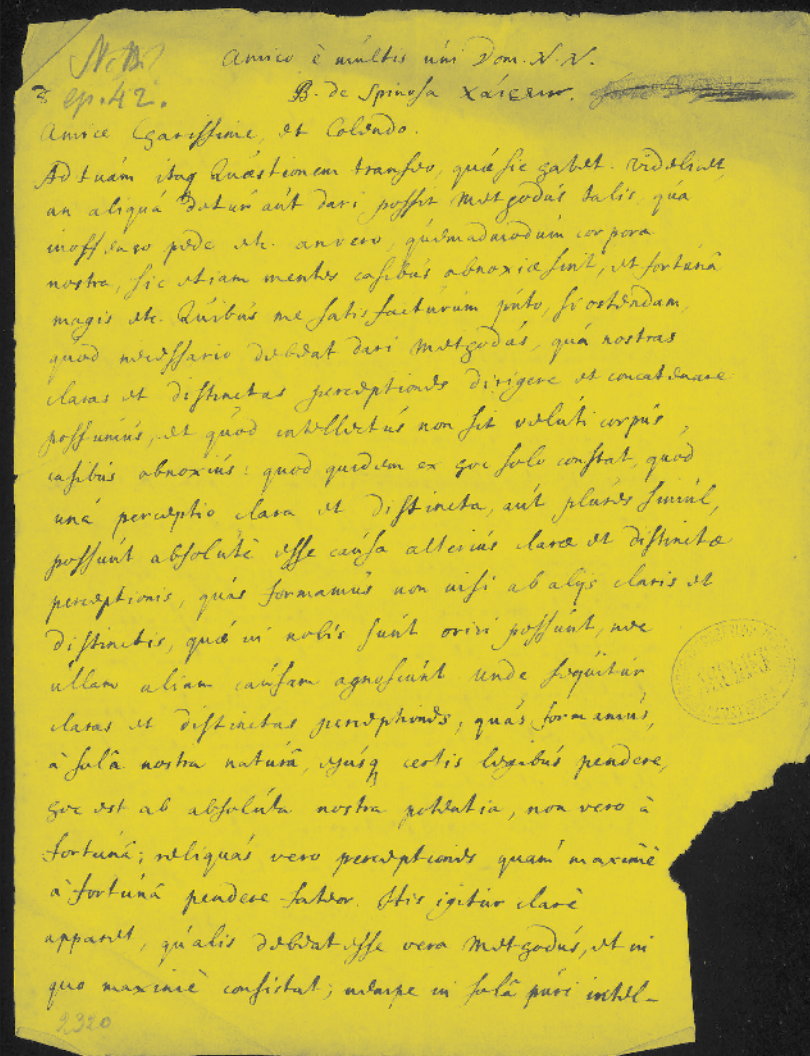 N.B.
ep. 42.
Amico è multis uni Dom. N. N.
B. de Spinosa χαίρειν.
Amice Charissime, et Colendo.
Ad tuam itaq Quæstionem transeo, quæ sic habet. videlicet
an aliqua detur aut dari possit Methodus talis, qua
inoffenso pede etc. an vero, quemadmodum corpora
nostra, sic etiam mentes casibus obnoxiæ sint, et fortunâ
magis etc. Quibus me satis facturum puto, si ostendam,
quod necessario debeat dari Methodus, quâ nostras
claras et distinctas perceptiones dirigere et concatenare
possumus, et quod intellectus non sit veluti corpus,
casibus obnoxius: quod quidem ex hoc solo constat, quod
una perceptio clara et distincta, aut plures simul,
possunt absolutè esse causa alterius claræ et distinctæ
perceptionis, quas formamus non nisi ab alijs claris et
distinctis, quæ in nobis sunt oriri possunt, nec
ullam aliam causam agnoscunt unde sequitur
claras et distinctas perceptiones, quas formamus,
à solâ nostra naturâ, ejusq certis legibus pendere,
hoc est ab absoluta nostra potentia, non vero à
fortunâ; reliquas vero perceptiones quam maximè
à fortunâ pendere fateor. His igitur clarè
apparet, qualis debeat esse vera Methodus, et in
quo maximè consistat; nempe in solâ puri intel-
2320